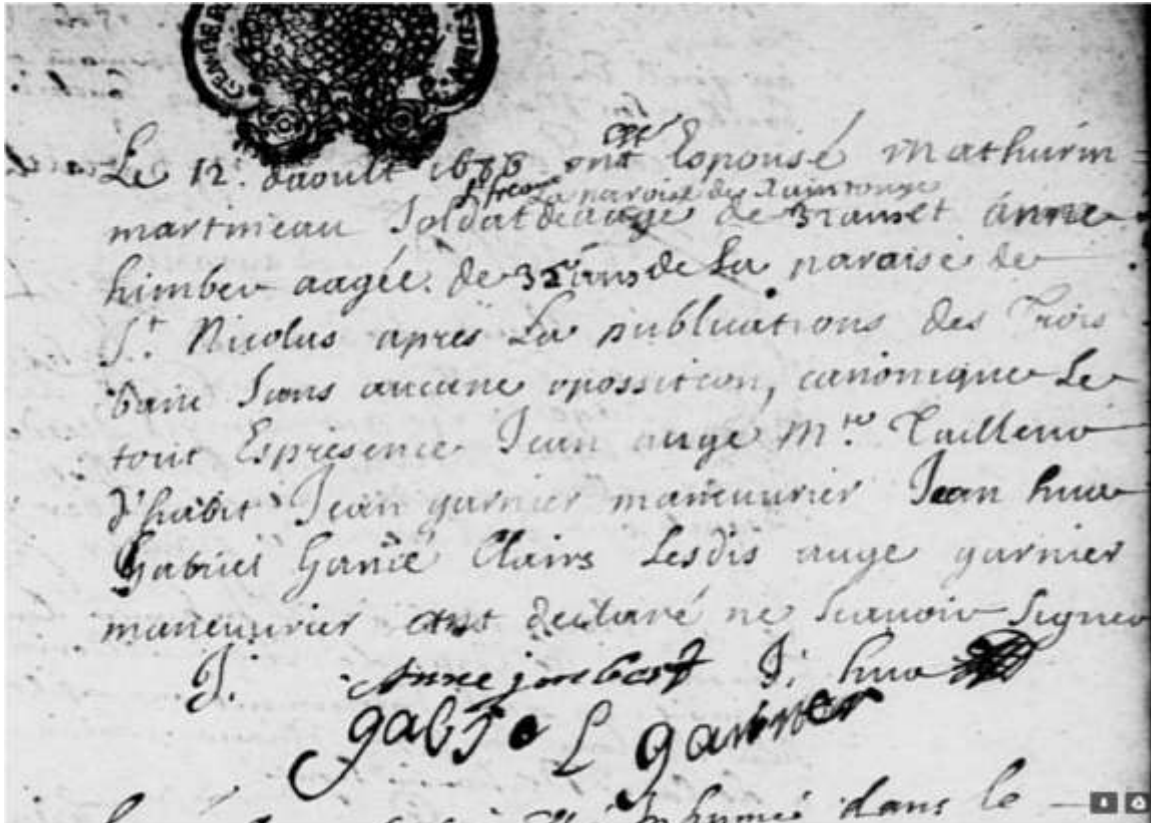 Le 12e daoult 1688 ont Esponsé Mathurin
La paroise des
martineau Soldat de aagé de 32 ans et anne
himber aagée de 32 ans de La paraise de
St. Nicolas apres La publications des Trois
banc Sans aucune opossition, canonique Le
tout Espresence Jean augé Mre Tailleur
d'habit Jean garnier maneuurier Jean hua
Gabriel Clairs Lesdis auge garnier
maneuurier ont declaré ne Scauoir Signer
J. Anne jmbert J: hua
gabriel garnier
inhumé dans le